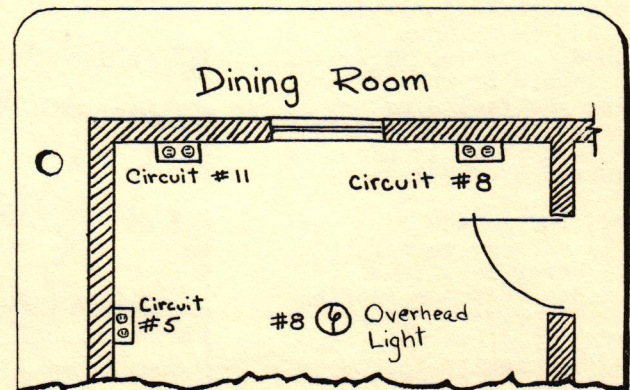 Dining Room
Circuit #11
Circuit #8
Circuit
#5
#8
Overhead
Light